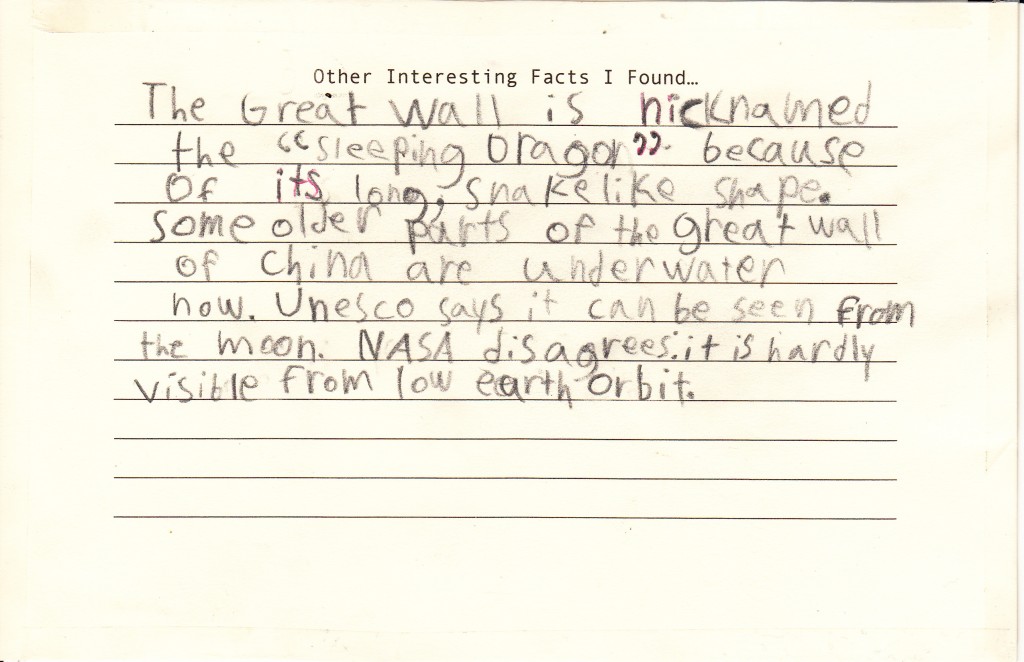 Other Interesting Facts I Found…
The Great Wall is nicknamed
the “sleeping Dragon”. because
Of its long, snakelike shape.
some older parts of the great wall
of China are underwater
now. Unesco says it can be seen from
the moon. NASA disagrees. it is hardly
visible from low earth orbit.